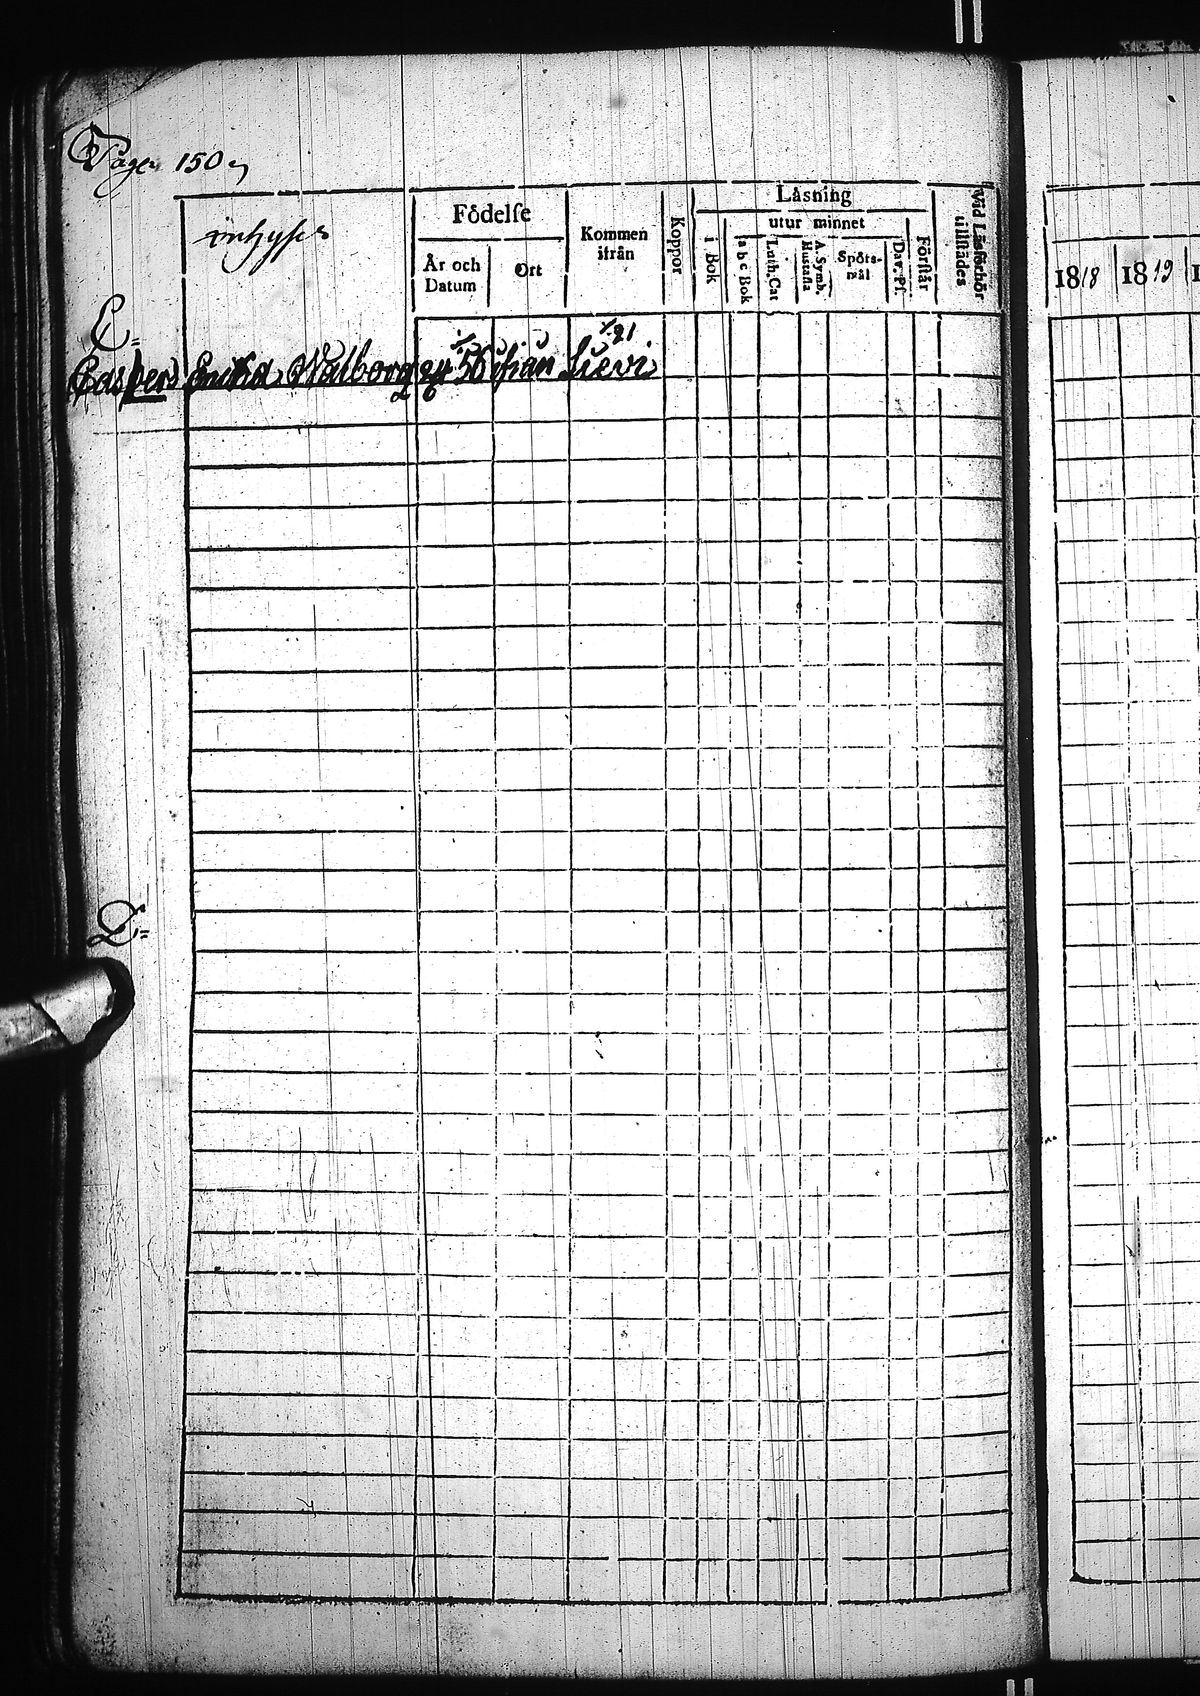 Page 150
Inhyses
Födelse
År och Datum
Ort
Kommen ifrån
Koppor
Läsning
i Bok
utur minnet
a b c Bok
Luth. Cat
A. Symb. Hustafla
Spörs-mål
Dav. Ps.
Förstår
Vid Läsförhör tillstädes
1818
1819
1
C=
1/21
Caspers Walborg 24/6 56 Sievi
D=